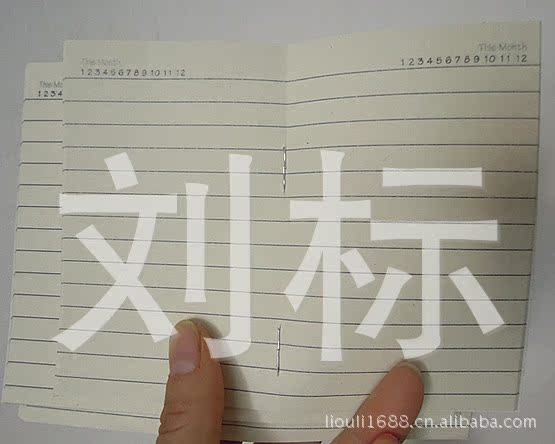 This Month
1 2 3 4 5 6 7 8 9 10 11 12
This Month
1 2 3 4 5 6 7 8 9 10 11 12
This Mo
1 2 3 4
刘标
liouli1688.cn.alibaba.com